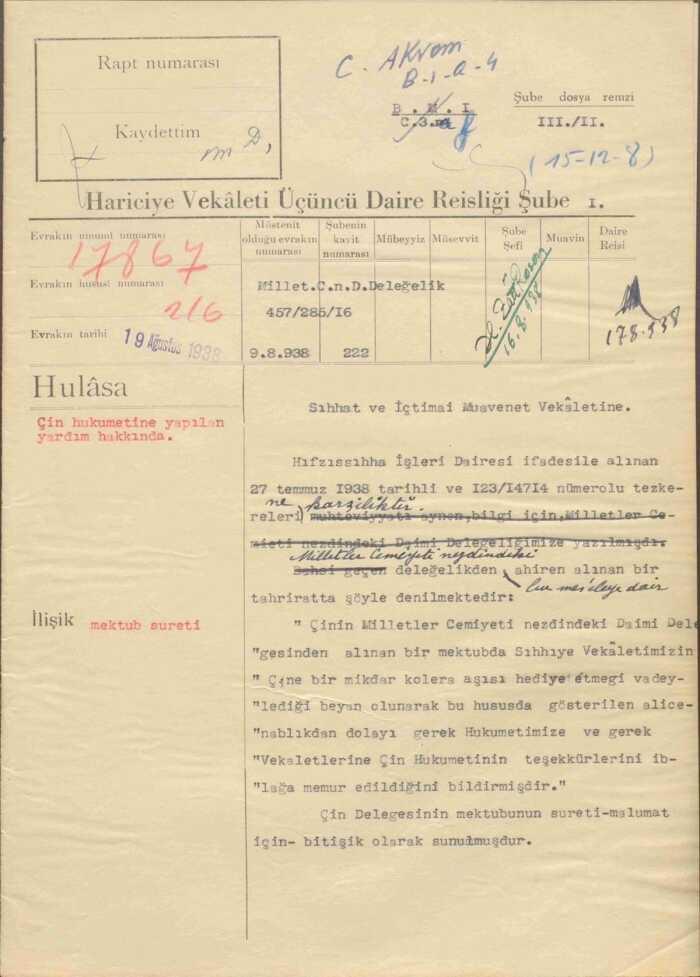 Rapt numarası
Kaydettim
C. Akvam
B-1-a-4
B.M.I
C.3.
Şube dosya remzi
III./II.
(15-12-8)
Hariciye Vekâleti Üçüncü Daire Reisliği Şube I.
Evrakın umumî numarası
17867
Evrakın hususî numarası
216
Evrakın tarihi
19 Ağustos 1938
Müstenit olduğu evrakın numarası
Şubenin kayit numarası
Mübeyyiz
Müsevvit
Şube Şefi
Muavin
Daire Reisi
Millet.C.n.D.Deleğelik
457/285/I6
9.8.938
222
16.8.938
178.938
Hulâsa
Çin hukumetine yapılan
yardım hakkında.
İlişik
mektub sureti
Sıhhat ve İçtimai Muavenet Vekâletine.
Hıfzıssıhha İşleri Dairesi ifadesile alınan
27 temmuz I938 tarihli ve I23/I47I4 nümerolu tezke-
ne karşılıktır.
releri muhteviyyatı aynen,bilgi için,Milletler Ce-
mieti nezdindeki Daimi Delegeliğimize yazılmışdı.
Milletler Cemiyeti nezdindeki
Bahsi geçen deleğelikden, ahiren alınan bir
bu mes'eleye dair
tahriratta şöyle denilmektedir:
" Çinin Milletler Cemiyeti nezdindeki Daimi Dele
"gesinden alınan bir mektubda Sıhhıye Vekâletimizin
" Çine bir mikdar kolera aşısı hediye etmegi vadey-
"lediği beyan olunarak bu hususda gösterilen alice-
"nablıkdan dolayı gerek Hukumetimize ve gerek
"Vekaletlerine Çin Hukumetinin teşekkürlerini ib-
"lağa memur edildiğini bildirmişdir."
Çin Delegesinin mektubunun sureti-malumat
için- bitişik olarak sunulmuşdur.